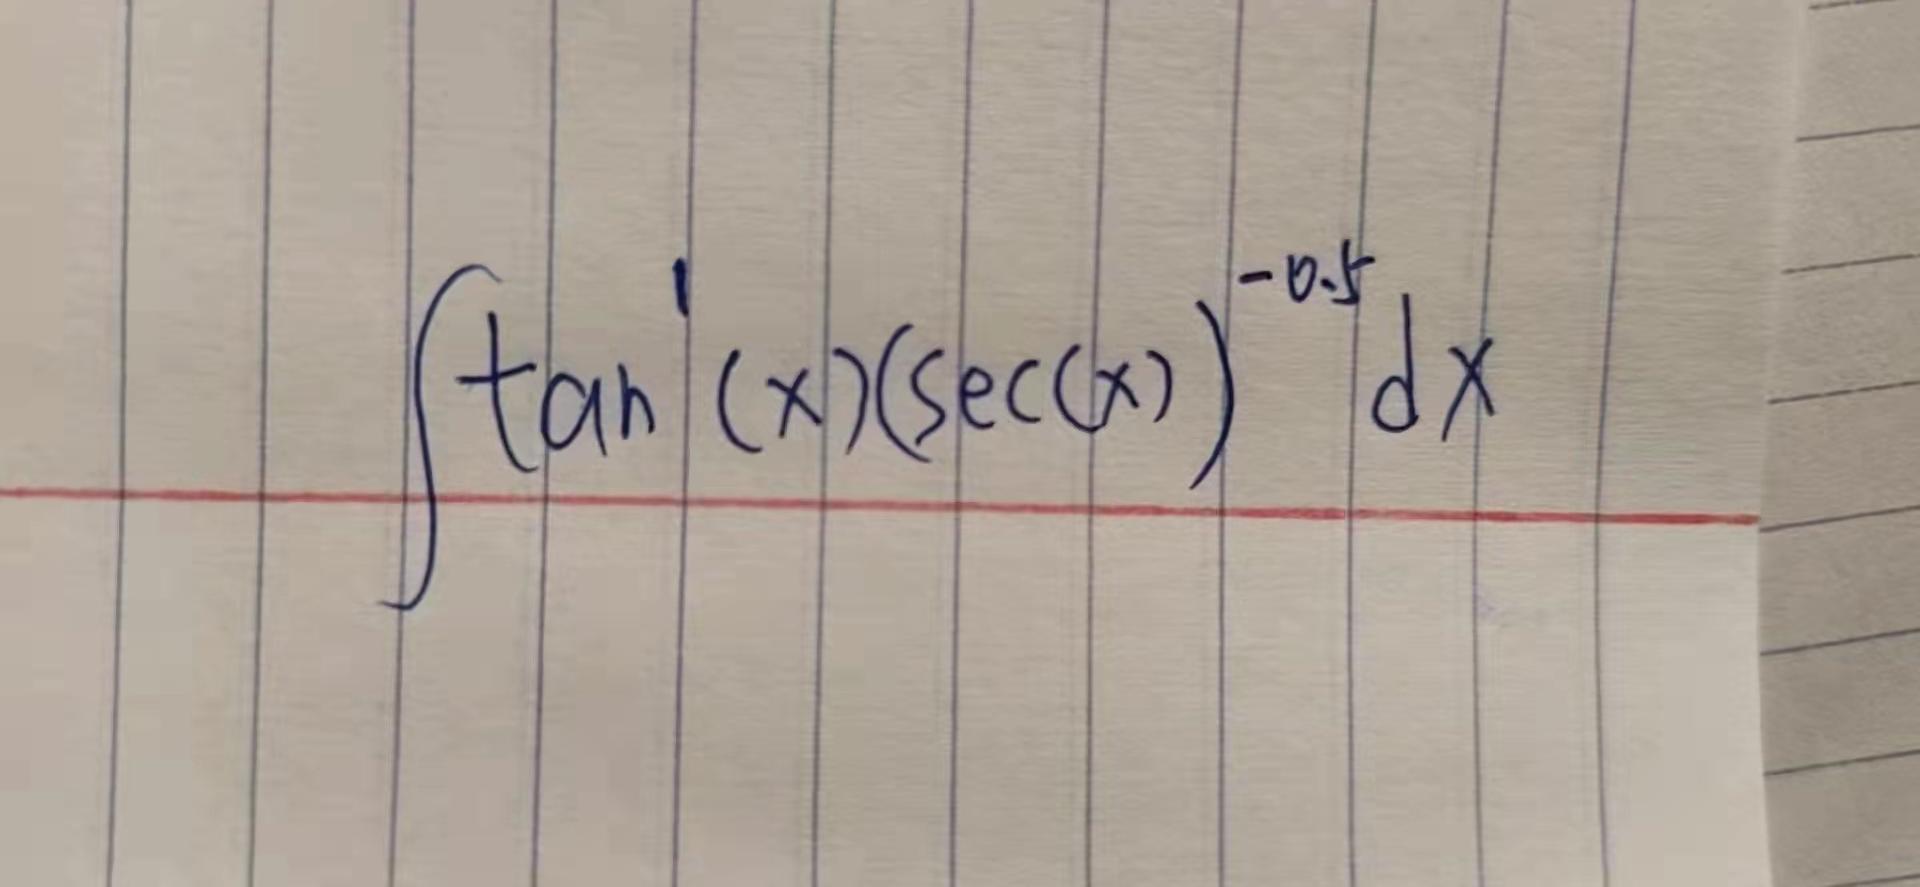 ∫tan¹(x)(sec(x))^-0.5 dx